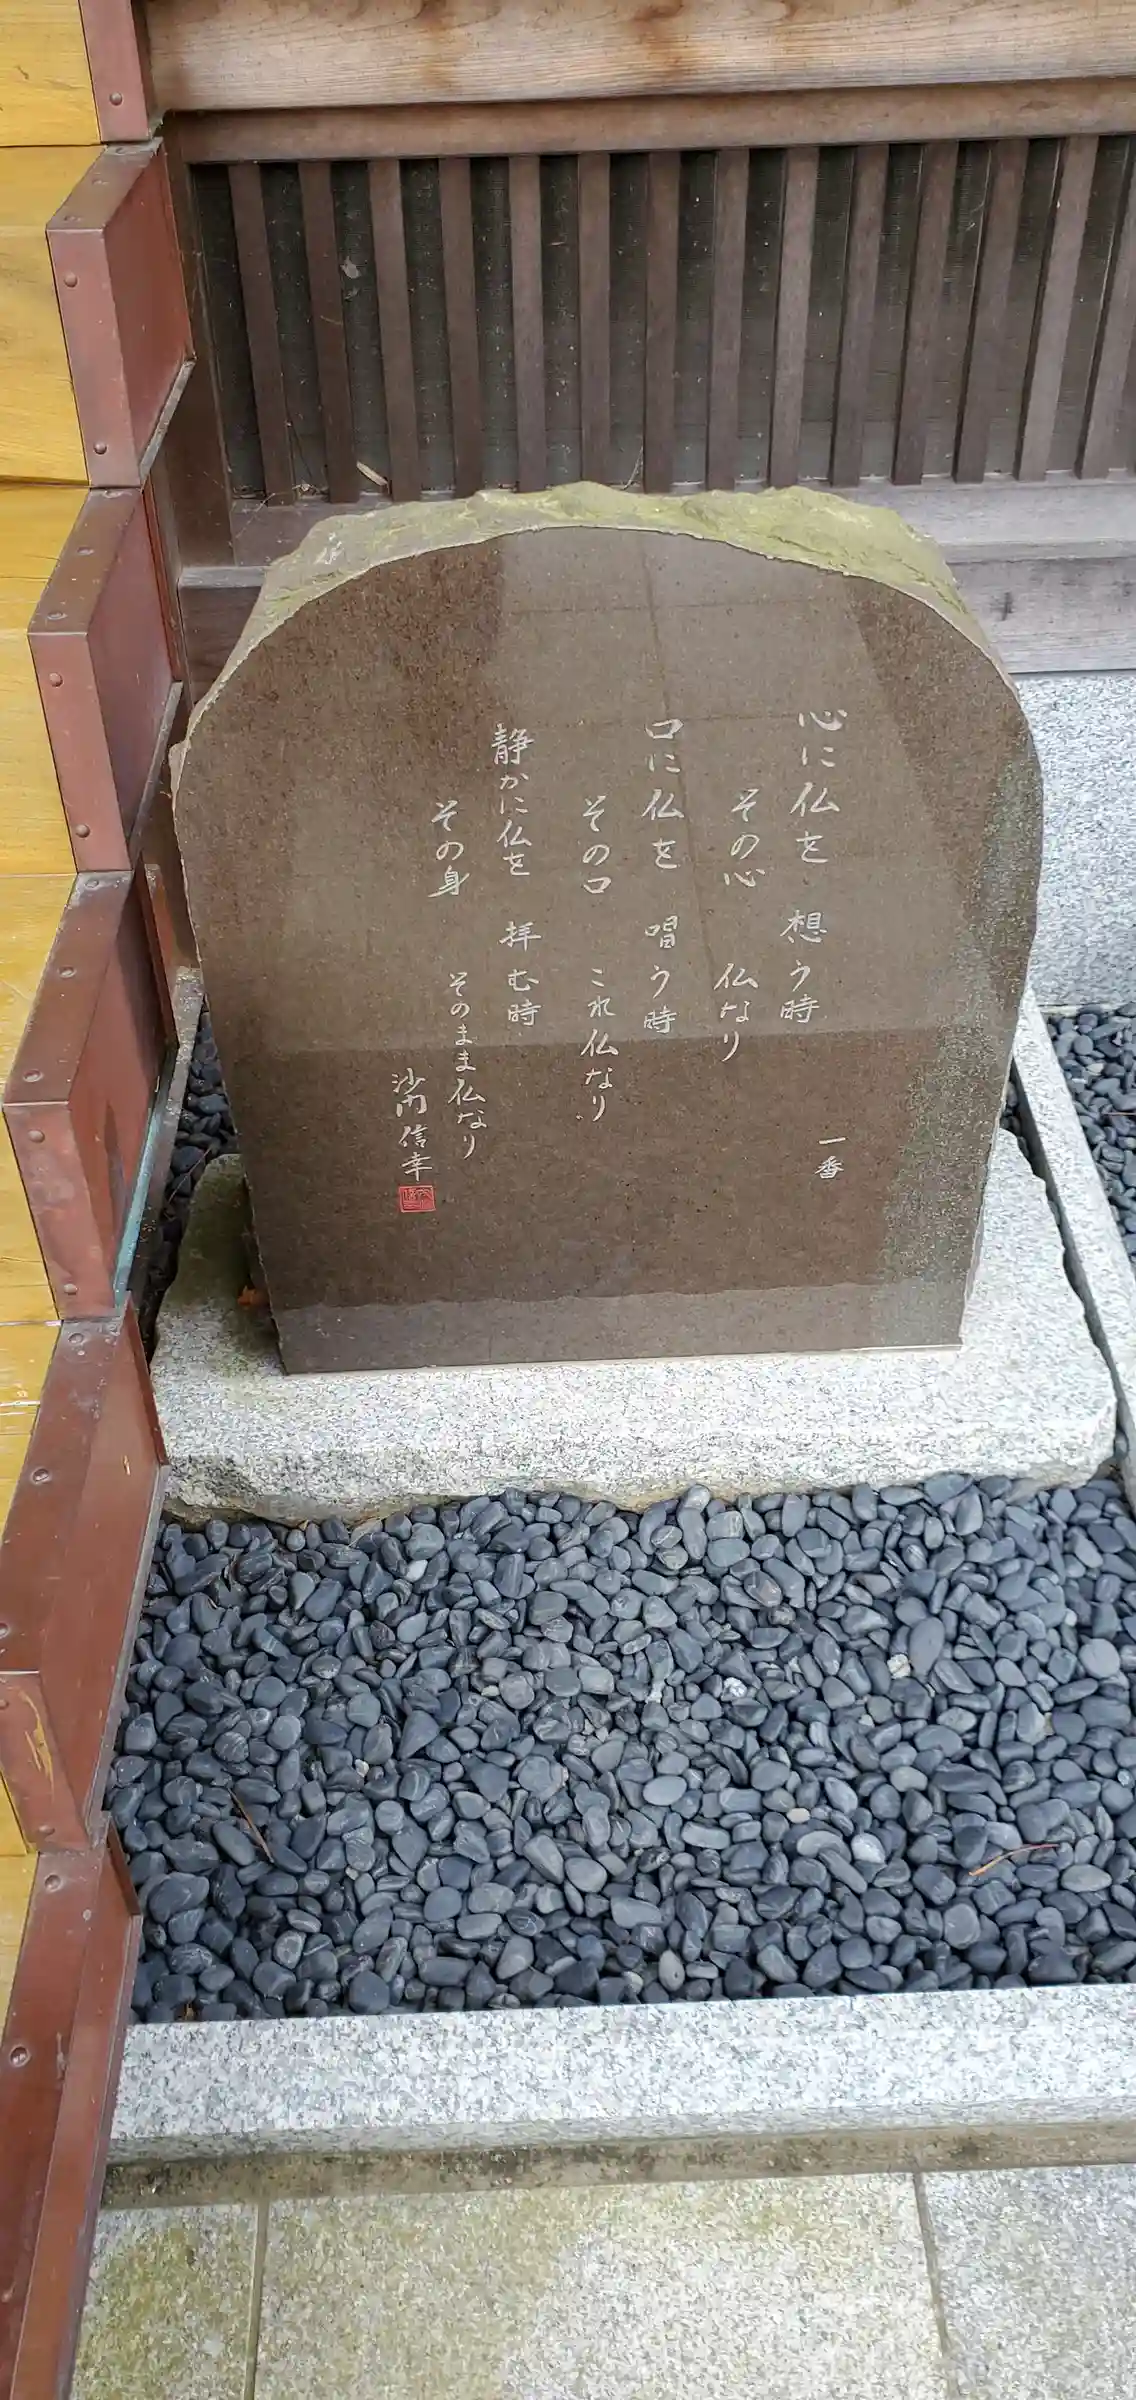 心に仏を 想う時
その心 仏なり
一番
口に仏を 唱う時
その口 これ仏なり
静かに仏を 拝む時
その身 そのまま仏なり
信幸